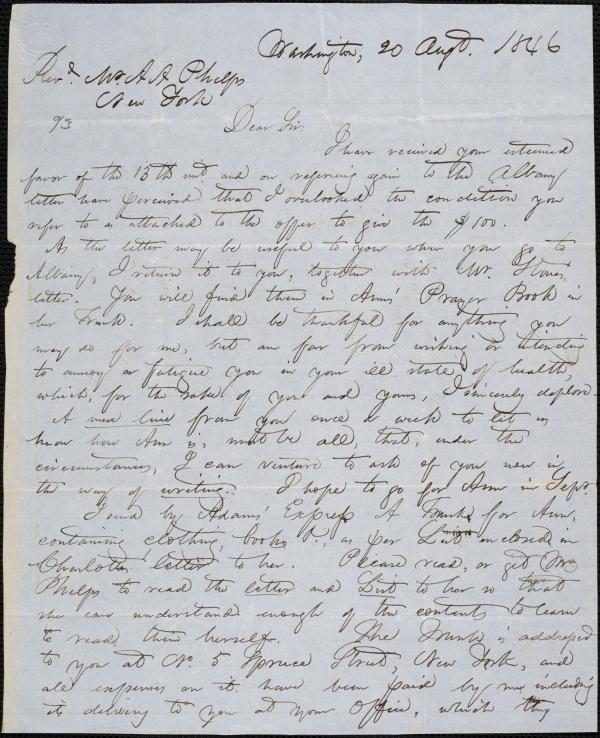 Washington, 20 Augt. 1846
Revd. Mr A A Phelps
New York
93
Dear Sir.
I have received your esteemed
favor of the 13th inst. and on referring again to the Albany
letter have perceived that I overlooked the condition you
refer to as attached to the offer to give the $100.
As the letter may be useful to you when you go to
Albany, I return it to you, together with Mr.
letter. You will find them in Ann's Prayer Book in
her Trunk. I shall be thankful for anything you
may do for me, but am far from wishing or intending
to annoy or fatigue you in your ill state of health,
which, for the sake of you and yours, I sincerely deplore.
A mere line from you once a week to let us
know how Ann is, must be all, that, under the
circumstances, I can venture to ask of you now in
the way of writing. I hope to go for Ann in Sepr.
I send by Adams' Express A Trunk for Ann,
containing clothing, books &c., as per List enclosed in
Charlotte's letter to her. Please read, or get Mrs
Phelps to read the letter and List to her so that
she can understand enough of the contents to learn
to read them herself. The Trunk is addressed
to you at No. 5 Spruce Street, New York, and
all expenses on it have been paid by me including
its delivery to you at your Office, which they